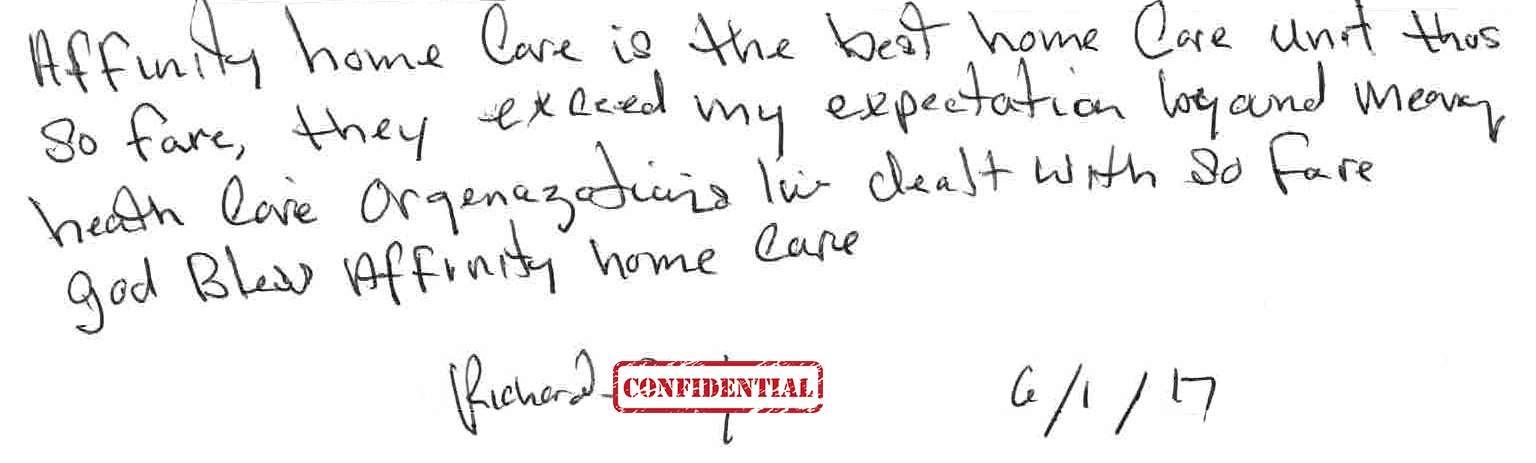 Affinity home Care is the best home Care unit thus
So fare, they exceed my expectation beyand meany
heath Care Orgenazations I'v dealt with so fare
god Bless Affinity home Care
Richard CONFIDENTIAL 6/1/17